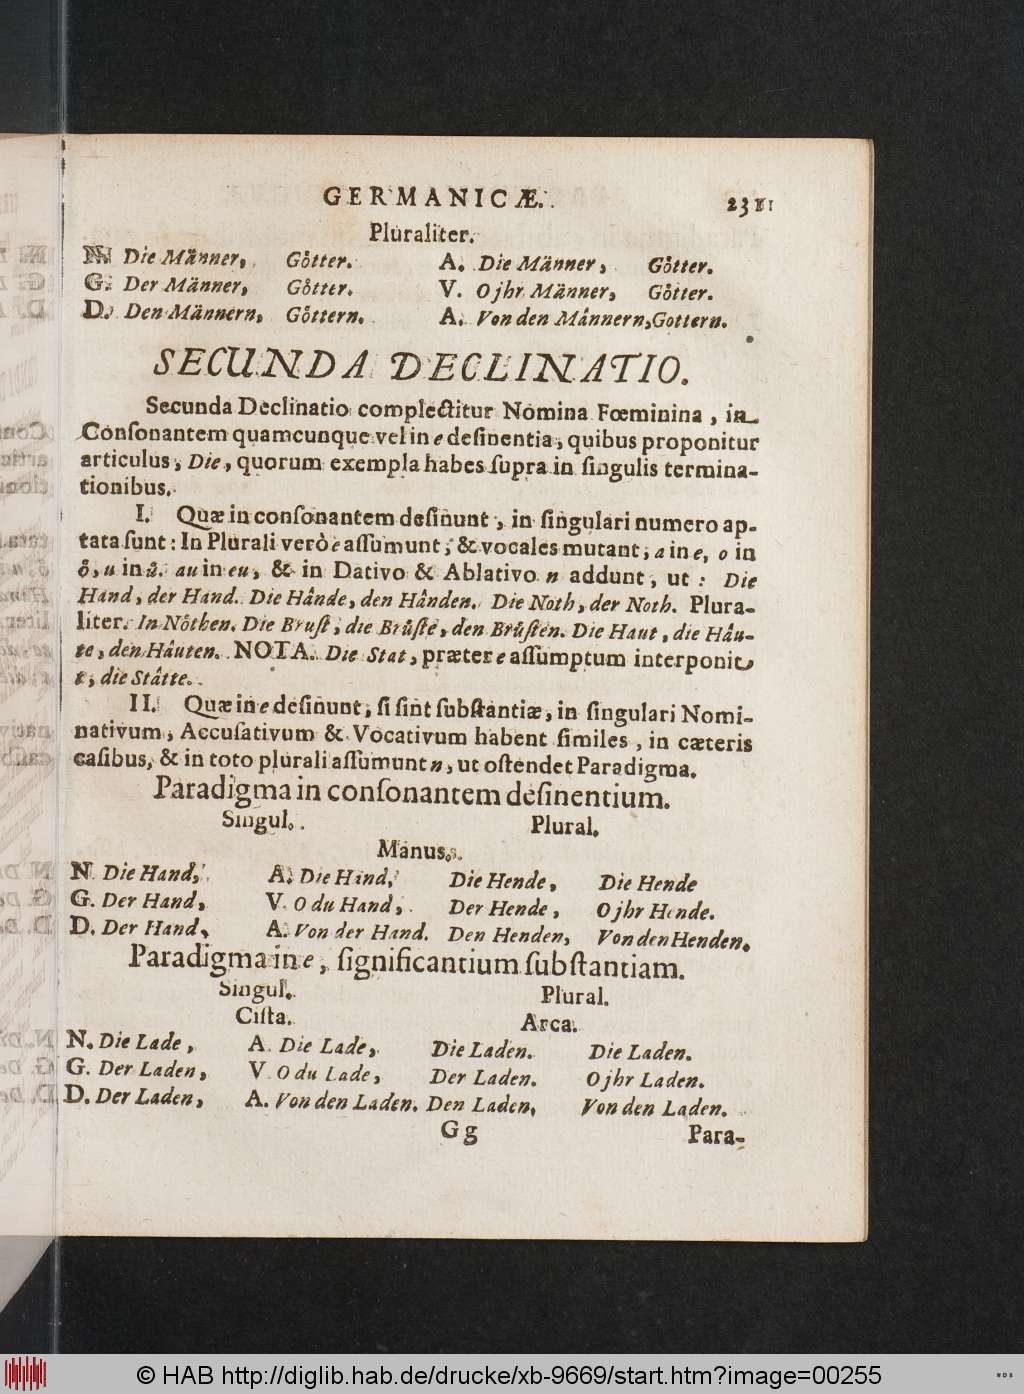 GERMANICÆ. 231
Pluraliter.
N. Die Männer, Götter. A. Die Männer, Götter.
G. Der Männer, Götter. V. O jhr Männer, Götter.
D. Den Männern, Göttern. A. Von den Männern, Gottern.
SECUNDA DECLINATIO.
Secunda Declinatio complectitur Nomina Fœminina, in
Conſonantem quamcunque vel in e deſinentia, quibus proponitur
articulus, Die, quorum exempla habes ſupra in ſingulis termina-
tionibus.
I. Quæ in conſonantem deſinunt, in ſingulari numero ap-
tata ſunt: In Plurali verò e aſſumunt, & vocales mutant, a in e, o in
ö, u in ü. au in eu, & in Dativo & Ablativo n addunt, ut: Die
Hand, der Hand. Die Hände, den Händen. Die Noth, der Noth. Plura-
liter. In Nöthen. Die Bruſt, die Brüſte, den Brüſten. Die Haut, die Häu-
te, den Häuten. NOTA. Die Stat, præter e aſſumptum interponit
t, die Stätte.
II. Quæ in e deſinunt, ſi ſint ſubſtantiæ, in ſingulari Nomi-
nativum, Accuſativum & Vocativum habent ſimiles, in cæteris
caſibus, & in toto plurali aſſumunt n, ut oſtendet Paradigma.
Paradigma in conſonantem deſinentium.
Singul. Plural.
Manus.
N. Die Hand, A. Die Hand, Die Hende, Die Hende
G. Der Hand, V. O du Hand, Der Hende, O jhr Hende.
D. Der Hand, A. Von der Hand. Den Henden, Von den Henden.
Paradigma in e, ſignificantium ſubſtantiam.
Singul. Plural.
Ciſta. Arca.
N. Die Lade, A. Die Lade, Die Laden. Die Laden.
G. Der Laden, V. O du Lade, Der Laden. O jhr Laden.
D. Der Laden, A. Von den Laden. Den Laden, Von den Laden.
Gg Para-
© HAB http://diglib.hab.de/drucke/xb-9669/start.htm?image=00255